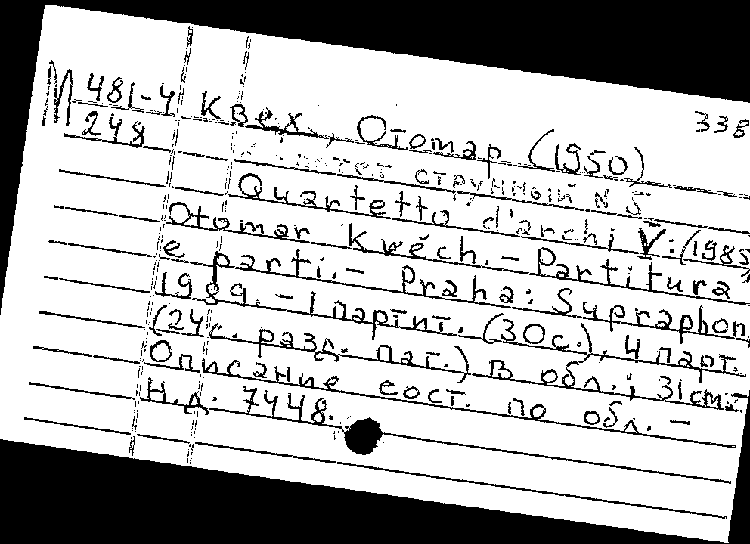 М 481-4
248
338
Квех, Отомар (1950)
Квартет струнный N 5
Quartetto d'archi V: (1985)
Otomar Kvěch. - Partitura
e parti. - Praha: Supraphon,
1989. - 1 партит. (30с.), 4 парт.
(24с. разд. паг.) В обл.; 31см.
Описание сост. по обл. -
Н.д. 7448.